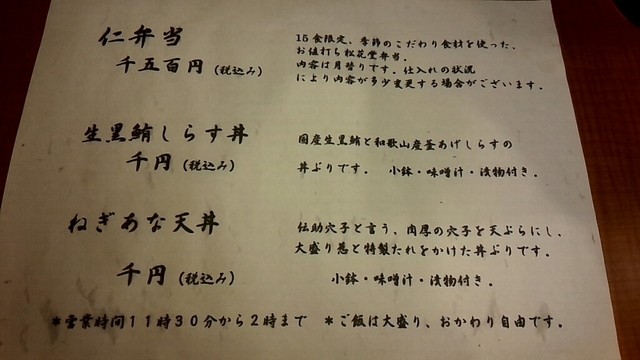 仁弁当
千五百円（税込み）
15食限定、季節のこだわり食材を使った、
お値打ち松花堂弁当。
内容は月替りです。仕入れの状況
により内容が多少変更する場合がございます。
生黒鮪しらす丼
千円（税込み）
国産生黒鮪と和歌山産釜あげしらすの
丼ぶりです。 小鉢・味噌汁・漬物付き。
ねぎあな天丼
千円（税込み）
伝助穴子と言う、肉厚の穴子を天ぷらにし、
大盛り葱と特製たれをかけた丼ぶりです。
小鉢・味噌汁・漬物付き．
＊営業時間１１時３０分から２時まで ＊ご飯は大盛り、おかわり自由です。